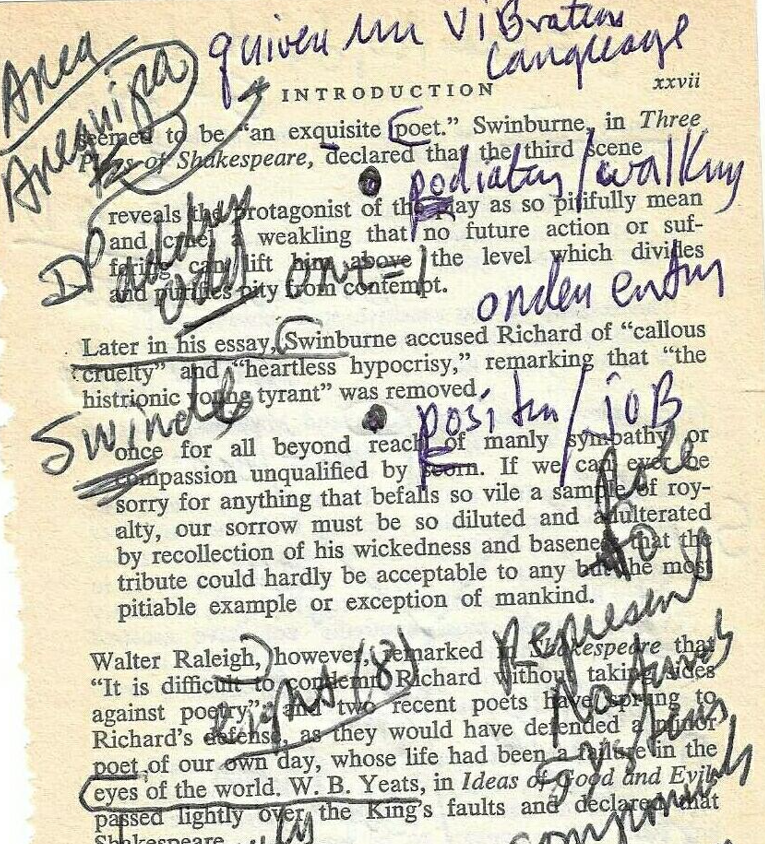 quiver in vibrating
language
Area
Arequipa
INTRODUCTION
xxvii
seemed to be "an exquisite poet." Swinburne, in Three
Plays of Shakespeare, declared that the third scene
podiatry/walking
reveals the protagonist of the play as so pitifully mean
and cruel a weakling that no future action or suf-
fering can lift him above the level which divides
and purifies pity from contempt.
DP
daddy
odd
one=1
order entry
Later in his essay, Swinburne accused Richard of "callous
cruelty" and "heartless hypocrisy," remarking that "the
histrionic young tyrant" was removed
Swindle
position/job
once for all beyond reach of manly sympathy or
compassion unqualified by scorn. If we can ever be
sorry for anything that befalls so vile a sample of roy-
alty, our sorrow must be so diluted and adulterated
by recollection of his wickedness and baseness that the
tribute could hardly be acceptable to any but the most
pitiable example or exception of mankind.
Role
to
Represent
Walter Raleigh, however, remarked in Shakespeare that
"It is difficult to condemn Richard without taking sides
against poetry" and two recent poets have sprung to
Richard's defense, as they would have defended a minor
poet of our own day, whose life had been a failure in the
eyes of the world. W. B. Yeats, in Ideas of Good and Evil,
passed lightly over the King's faults and declared that
Shakespeare
eight (8)
systems